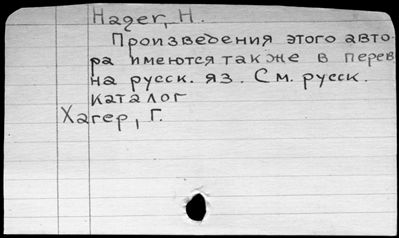 Hager, H.
Произведения этого авто-
ра имеются также в перев
на русск. яз. См. русск.
каталог
Хагер, Г.